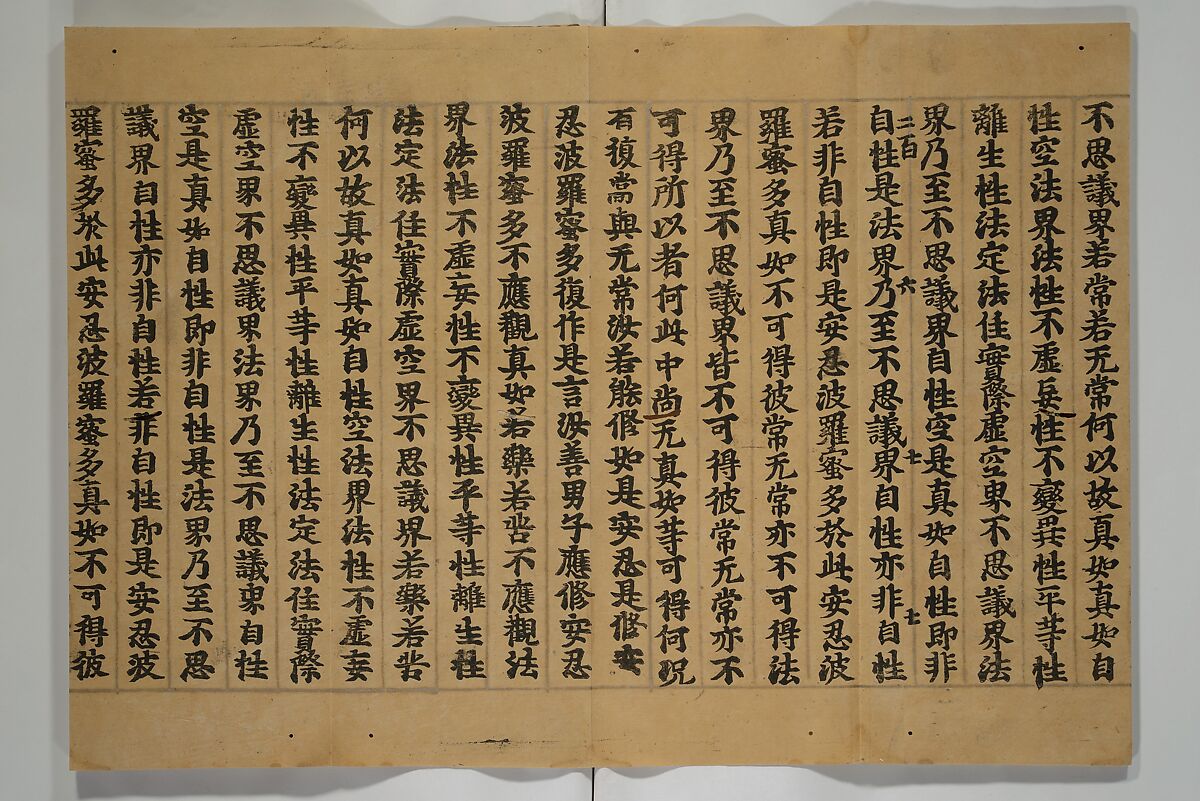 不思議界若常若无常何以故真如真如自
性空法界法性不虛妄性不變異性平等性
離生性法定法住實際虛空界不思議界法
界乃至不思議界自性空是真如自性即非
二百 六 七 七
自性是法界乃至不思議界自性亦非自性
若非自性即是安忍波羅蜜多於此安忍波
羅蜜多真如不可得彼常无常亦不可得法
界乃至不思議界皆不可得彼常无常亦不
可得所以者何此中尚无真如等可得何況
有復常與无常汝若能修如是安忍是修安
忍波羅蜜多復作是言汝善男子應修安忍
波羅蜜多不應觀真如若樂若苦不應觀法
界法性不虛妄性不變異性平等性離生性
法定法住實際虛空界不思議界若樂若苦
何以故真如真如自性空法界法性不虛妄
性不變異性平等性離生性法定法住實際
虛空界不思議界法界乃至不思議界自性
空是真如自性即非自性是法界乃至不思
議界自性亦非自性若非自性即是安忍波
羅蜜多於此安忍波羅蜜多真如不可得彼